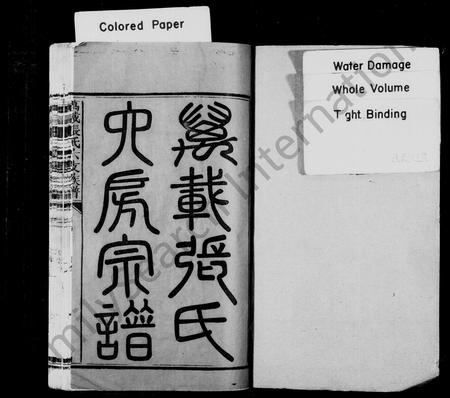 Colored Paper
Water Damage
Whole Volume
T ght Binding
萬載張氏
六房宗譜
萬載張氏六支族譜
FamilySearch International